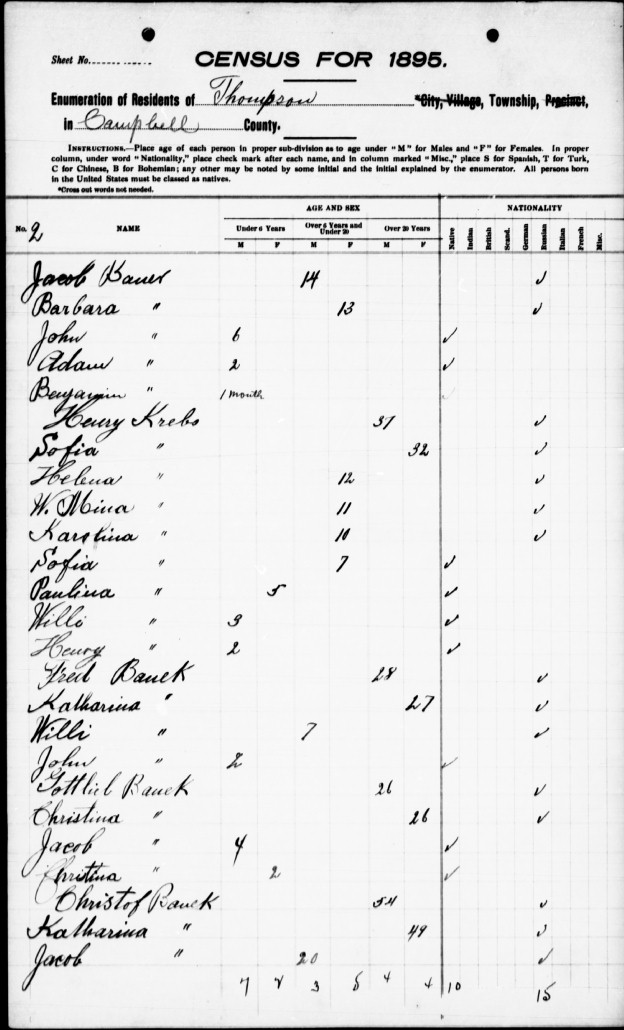 Sheet No.
CENSUS FOR 1895.
Enumeration of Residents of Thompson *City, Village, Township, Precinct,
in Campbell County.
INSTRUCTIONS.—Place age of each person in proper sub-division as to age under "M" for Males and "F" for Females. In proper
column, under word "Nationality," place check mark after each name, and in column marked "Misc.," place S for Spanish, T for Turk,
C for Chinese, B for Bohemian; any other may be noted by some initial and the initial explained by the enumerator. All persons born
in the United States must be classed as natives.
*Cross out words not needed.
AGE AND SEX NATIONALITY
No. 2 NAME Under 6 Years Over 6 Years and Under 20 Over 20 Years Native Indian British Scand. German Russian Italian French Misc.
M F M F M F
Jacob Bauer 14 ✓
Barbara " 13 ✓
John " 6 ✓
Adam " 2 ✓
Benjamin " 1 month ✓
Henry Krebs 37 ✓
Sofia " 32 ✓
Helena " 12 ✓
W. Mina " 11 ✓
Karolina " 10 ✓
Sofia " 7 ✓
Paulina " 5 ✓
Willi " 3 ✓
Henry " 2 ✓
Fred Bauek 28 ✓
Katharina " 27 ✓
Willi " 7 ✓
John " 2 ✓
Gottlieb Bauek 26 ✓
Christina " 26 ✓
Jacob " 4 ✓
Christina " 2 ✓
Christof Bauek 54 ✓
Katharina " 49 ✓
Jacob " 20 ✓
7 2 3 5 4 4 10 15